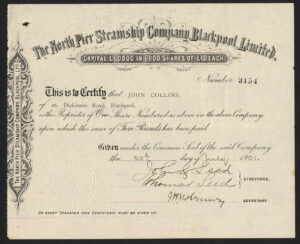 The North Pier Steamship Company, Blackpool, Limited.
CAPITAL £60,000 IN 6000 SHARES OF £10 EACH.
Number 3154
This is to Certify that JOHN COLLINS,
of 26, Dickinson Road, Blackpool,
is the Proprietor of One Share Numbered as above in the above Company
upon which the sum of Ten Pounds has been paid.
Given under the Common Seal of the said Company
the 22nd day of July 1901.
Seed
Thomas Seed
DIRECTORS.
SECRETARY.
TO EVERY TRANSFER THIS CERTIFICATE MUST BE GIVEN UP.
THE NORTH PIER STEAMSHIP COMPANY, BLACKPOOL,